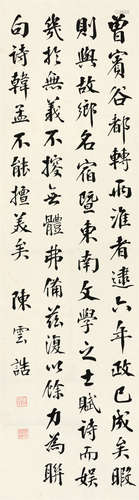 曾賓谷都轉兩淮者逮六年政已成矣暇
則與故鄉名宿暨東南文學之士賦詩而娛
幾於無義不搜無體弗備茲復以餘力為聯
句詩韓孟不能擅美矣 陳雲誥